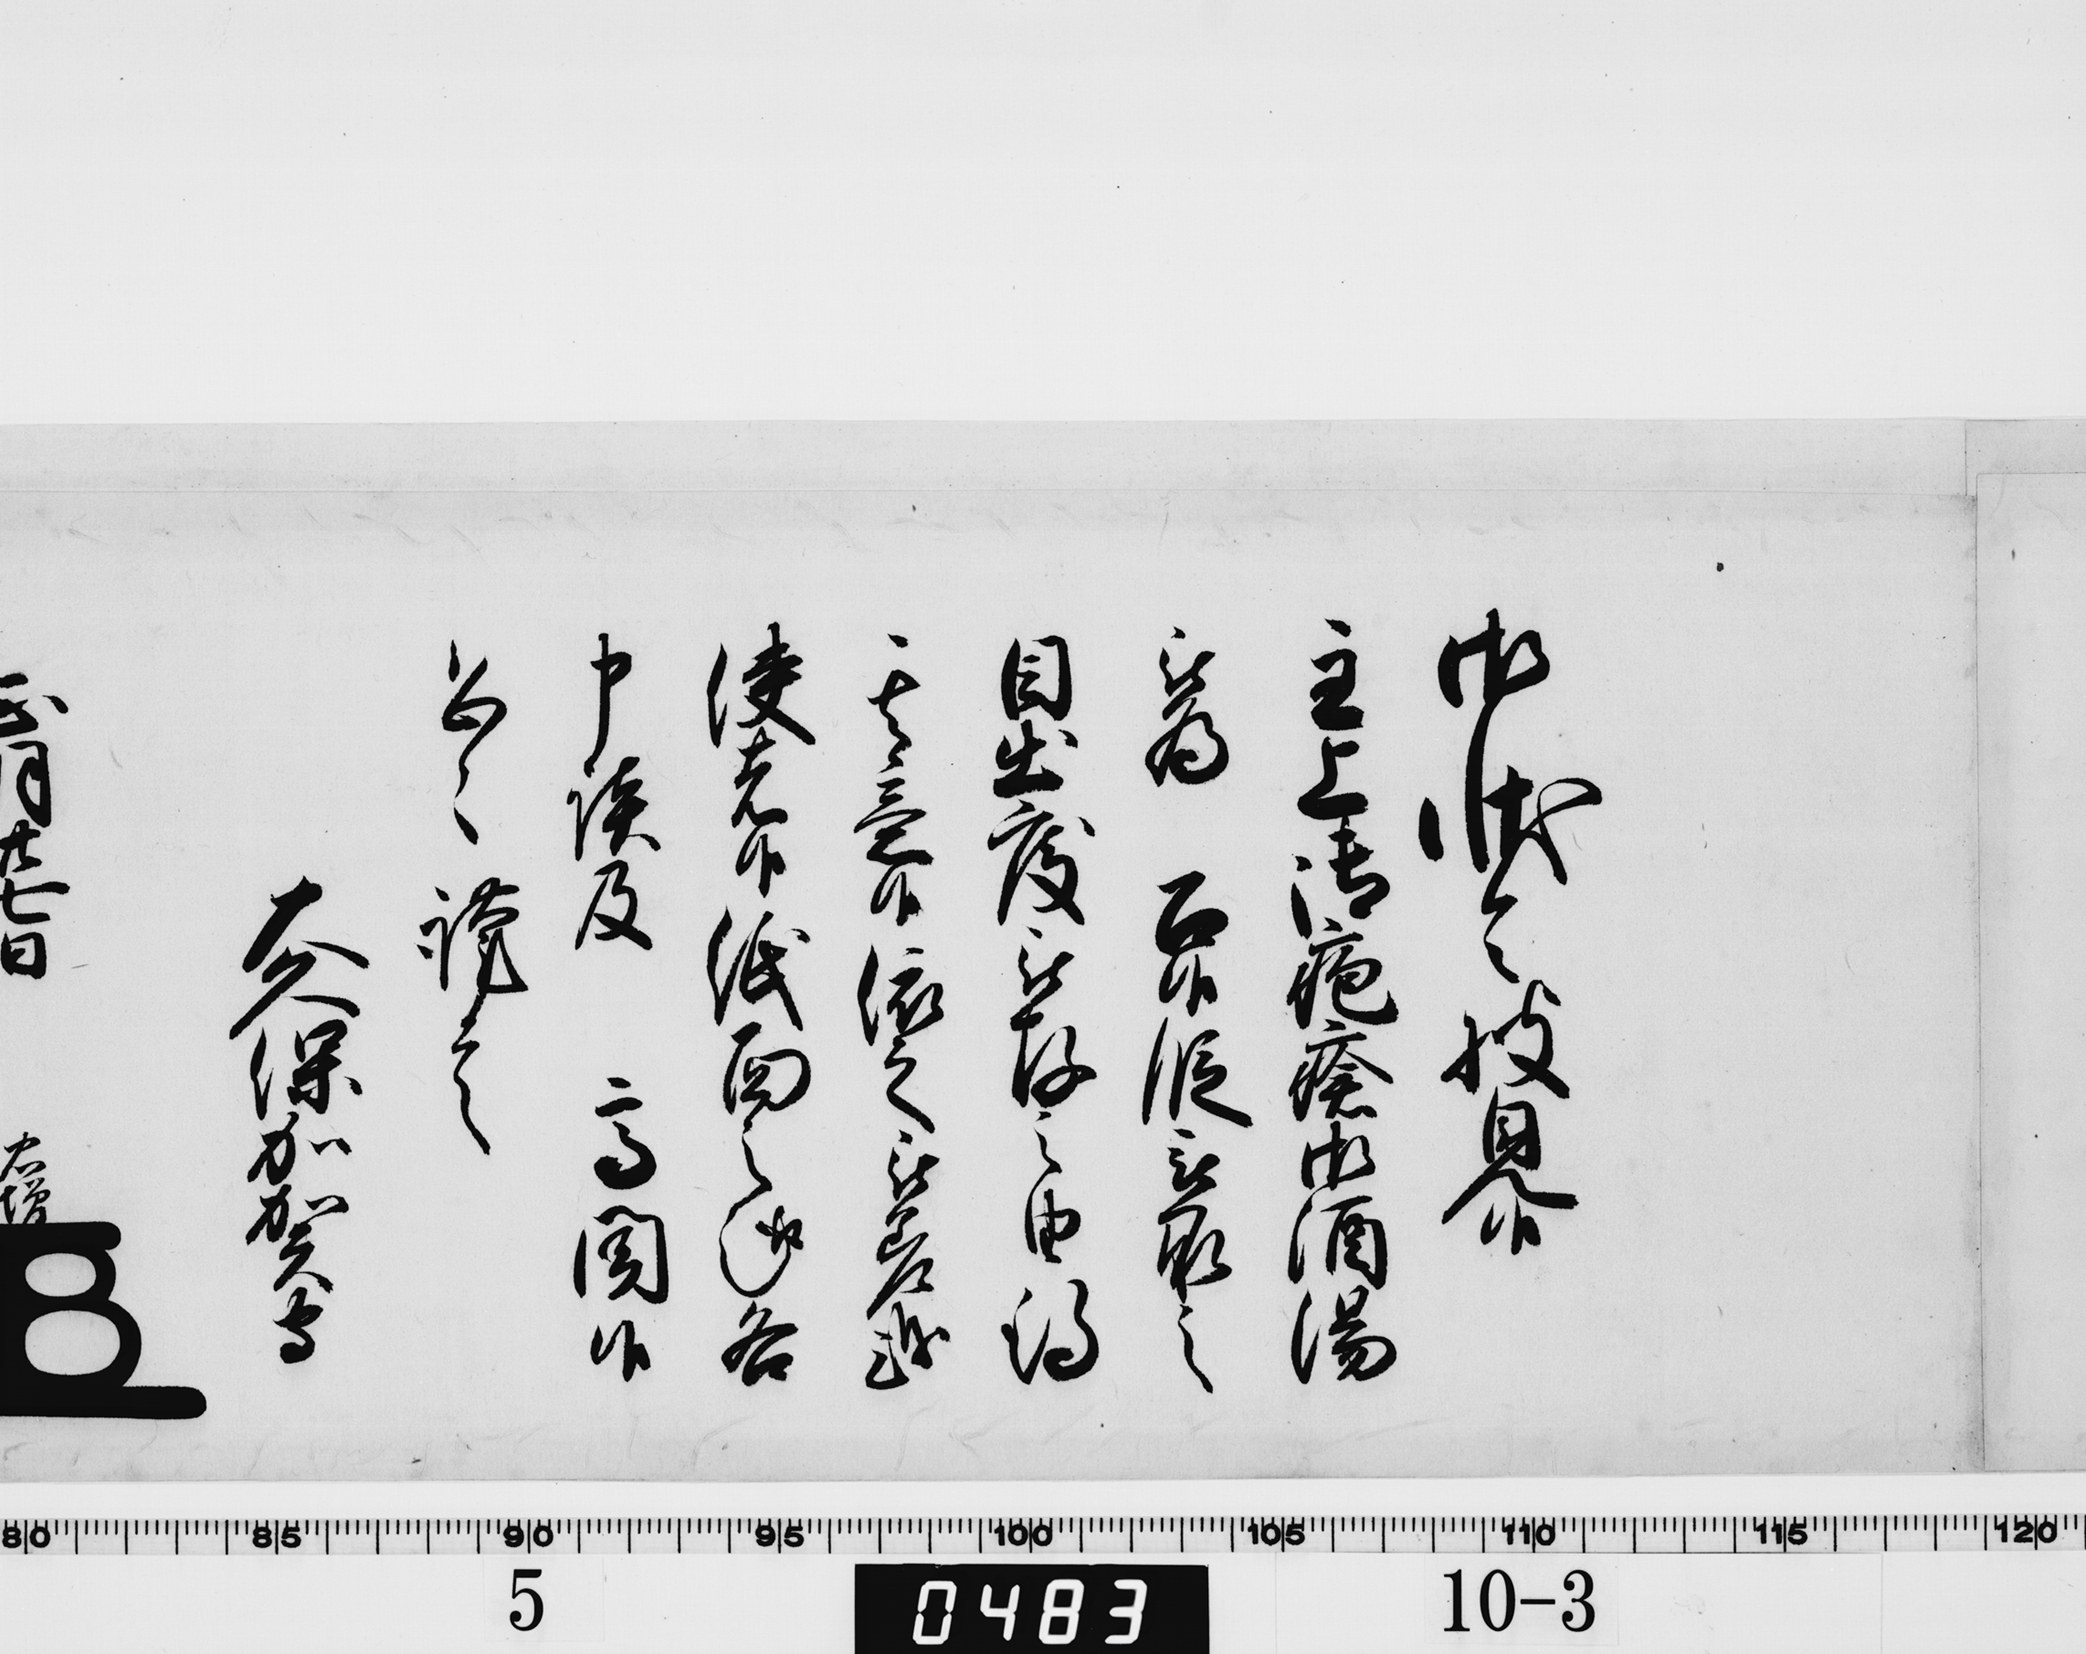 御状令披見候
主上御疱瘡御酒湯
被為召候段被聞之
目出度被存之由得
其意候依之被差越
使者候紙面之趣各
申談及言高聞候
恐々謹言
大久保加賀守
正月廿七日
80 85 90 95 100 105 110 115 120
5
0483
10-3